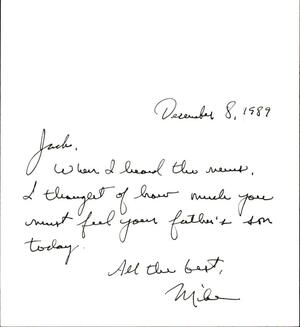 December 8, 1989
Jack,
When I heard the news,
I thought of how much you
must feel your father's son
today.
All the best,
Mike